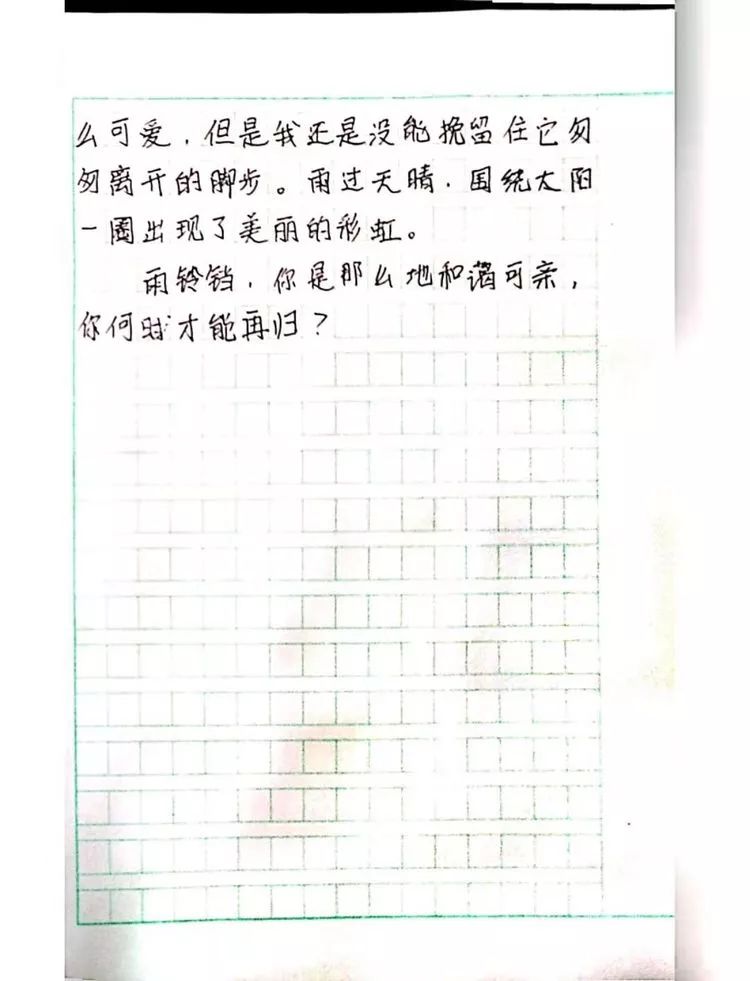 么可爱，但是我还是没能挽留住它匆
匆离开的脚步。雨过天晴，围绕太阳
一圈出现了美丽的彩虹。
雨铃铛，你是那么地和蔼可亲，
你何时才能再归？